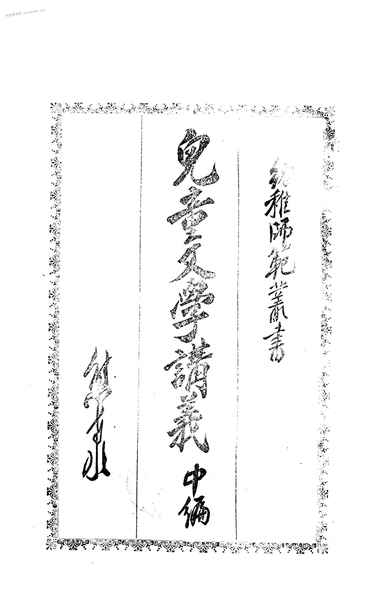 幼稚師範叢書
兒童文學講義 中編